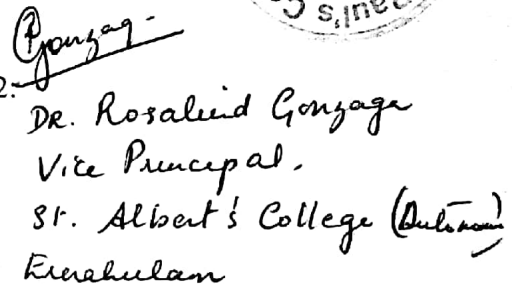 Gonzag
2.
Dr. Rosalind Gonzaga
Vice Principal.
St. Albert's College (Autonom)
Ernakulam